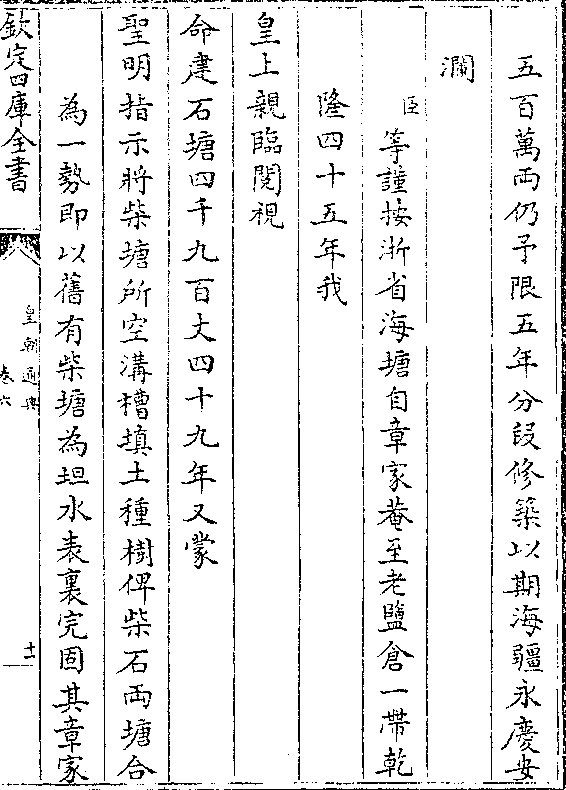 五百萬兩仍予限五年分段修築以期海疆永慶安
瀾
臣等謹按浙省海塘自章家菴至老鹽倉一帶乾
隆四十五年我
皇上親臨閱視
命建石塘四千九百丈四十九年又蒙
聖明指示將柴塘所空溝槽填土種樹俾柴石兩塘合
為一勢即以舊有柴塘為坦水表裏完固其章家
欽定四庫全書
皇朝通典
卷六
十一